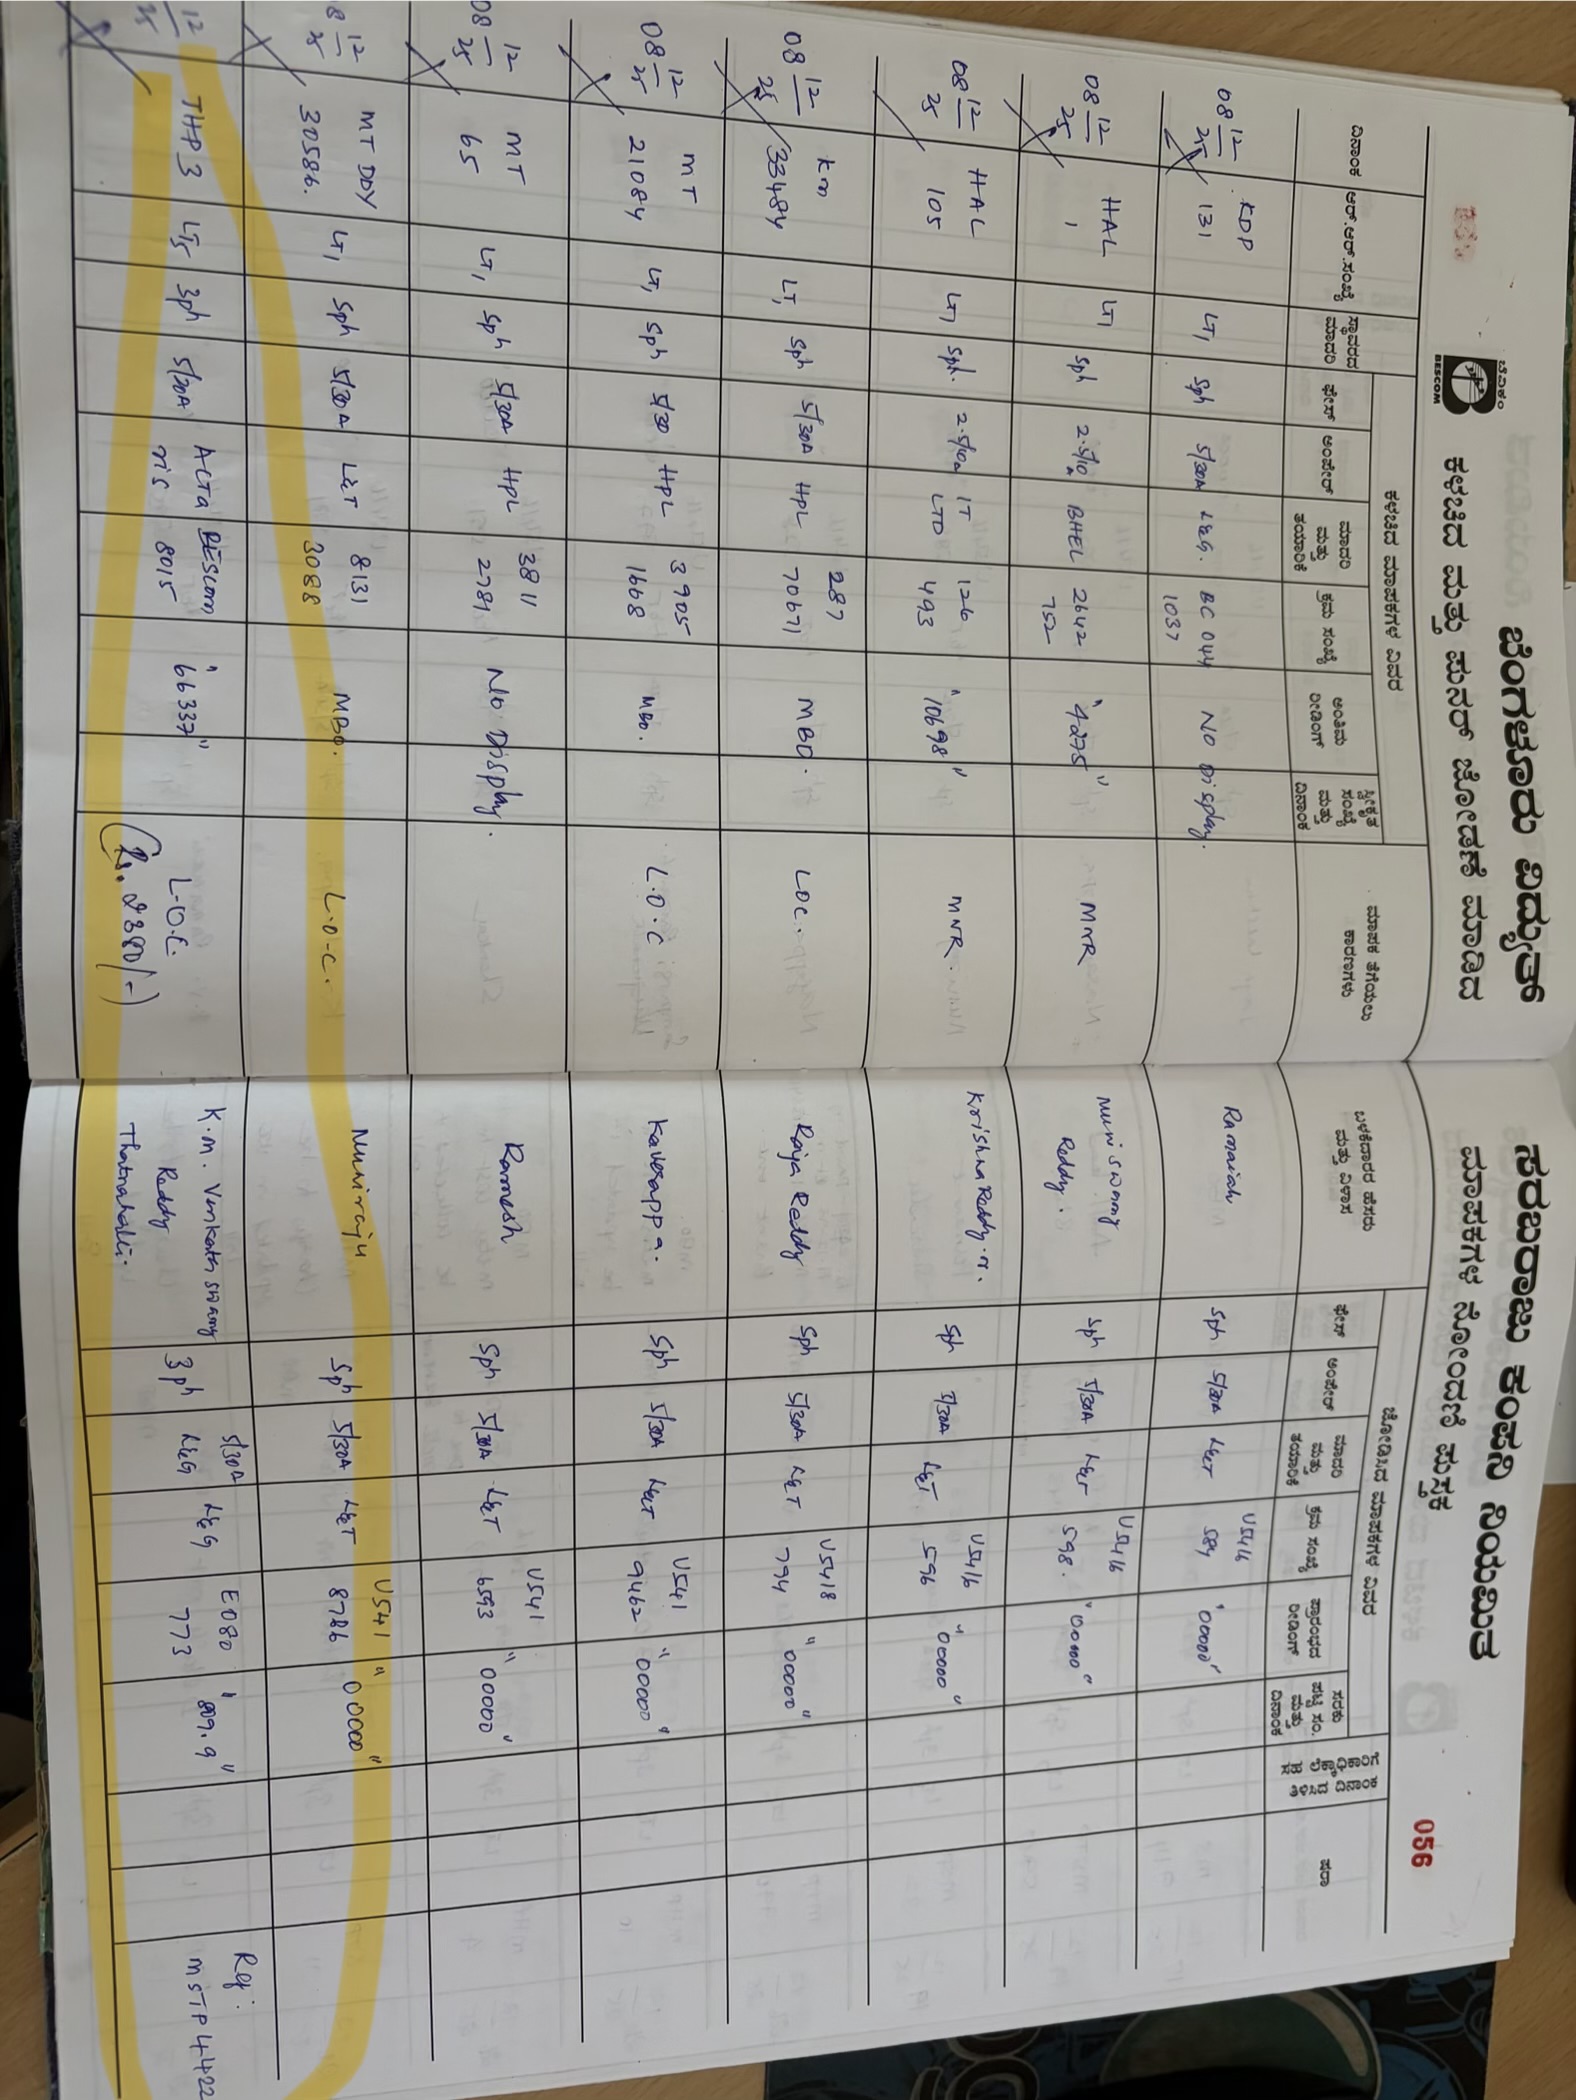 ಬೆಂಗಳೂರು ವಿದ್ಯುತ್ ಸರಬರಾಜು ಕಂಪನಿ ನಿಯಮಿತ
ಬೆವಿಕಂ
BESCOM
ಕಳಚಿದ ಮತ್ತು ಪುನರ್ ಜೋಡಣೆ ಮಾಡಿದ ಮಾಪಕಗಳ ನೋಂದಣಿ ಪುಸ್ತಕ
056
ದಿನಾಂಕ
ಆರ್.ಆರ್.ಸಂಖ್ಯೆ
ಸ್ಥಾವರದ ಮಾದರಿ
ಕಳಚಿದ ಮಾಪಕಗಳ ವಿವರ
ಫೇಸ್
ಅಂಪೇರ್
ಮಾದರಿ ಮತ್ತು ತಯಾರಿಕೆ
ಕ್ರಮ ಸಂಖ್ಯೆ
ಅಂತಿಮ ರೀಡಿಂಗ್
ಸ್ವೀಕೃತ ಸಂಖ್ಯೆ ಮತ್ತು ದಿನಾಂಕ
ಮಾಪಕ ತೆಗೆಯಲು ಕಾರಣಗಳು
ಬಳಕೆದಾರರ ಹೆಸರು ಮತ್ತು ವಿಳಾಸ
ಜೋಡಿಸಿದ ಮಾಪಕಗಳ ವಿವರ
ಫೇಸ್
ಅಂಪೇರ್
ಮಾದರಿ ಮತ್ತು ತಯಾರಿಕೆ
ಕ್ರಮ ಸಂಖ್ಯೆ
ಪ್ರಾರಂಭದ ರೀಡಿಂಗ್
ಸರಕು ಪಟ್ಟಿ ಸಂ. ಮತ್ತು ದಿನಾಂಕ
ಷರಾ
08 12/25 KDP 131 LT1 Sph 5/30A L&G. BC 044 1037 NO Display. Ramaiah Sph 5/30A L&T U5416 584 "00000"
08 12/25 HAL 1 LT1 Sph 2.5/10 BHEL 2642 752 "4275" MNR Muniswamy Reddy. Sph 5/30A L&T U5416 598. "00000"
08 12/25 HAL 105 LT1 Sph. 2.5/10A IT LTD 126 493 "10698" MNR. Krishna Reddy.M. Sph 5/30A L&T U5416 596 "00000"
08 12/25 KM 33484 LT1 Sph 5/30A HPL 287 70671 MBO. LOC. Raja Reddy Sph 5/30A L&T U5418 794 "00000"
08 12/25 MT 21084 LT1 Sph 5/30 HPL 3905 1668 MBO. L.O.C Kaverappa. Sph 5/30A L&T U541 9462 "00000"
08 12/25 MT 65 LT1 Sph 5/30A HPL 3811 2784 No. Display. Ramesh Sph 5/30A L&T U541 6593 "00000"
08 12/25 MT DDY 30586. LT1 Sph 5/30A L&T 8131 3088 MBO. L.O.C. Muniraju Sph 5/30A L&T U541 8786 "00000"
12/25 THP 3 LT5 3ph 5/30A ACTA RIS BESCOM 8015 "66337" L.O.C. (Rs. 2380/-) K.M. Venkataswamy Reddy Thatnahalli. 3ph 5/30A L&G L&G E080 773 "809.9" Ref: MSTP4422